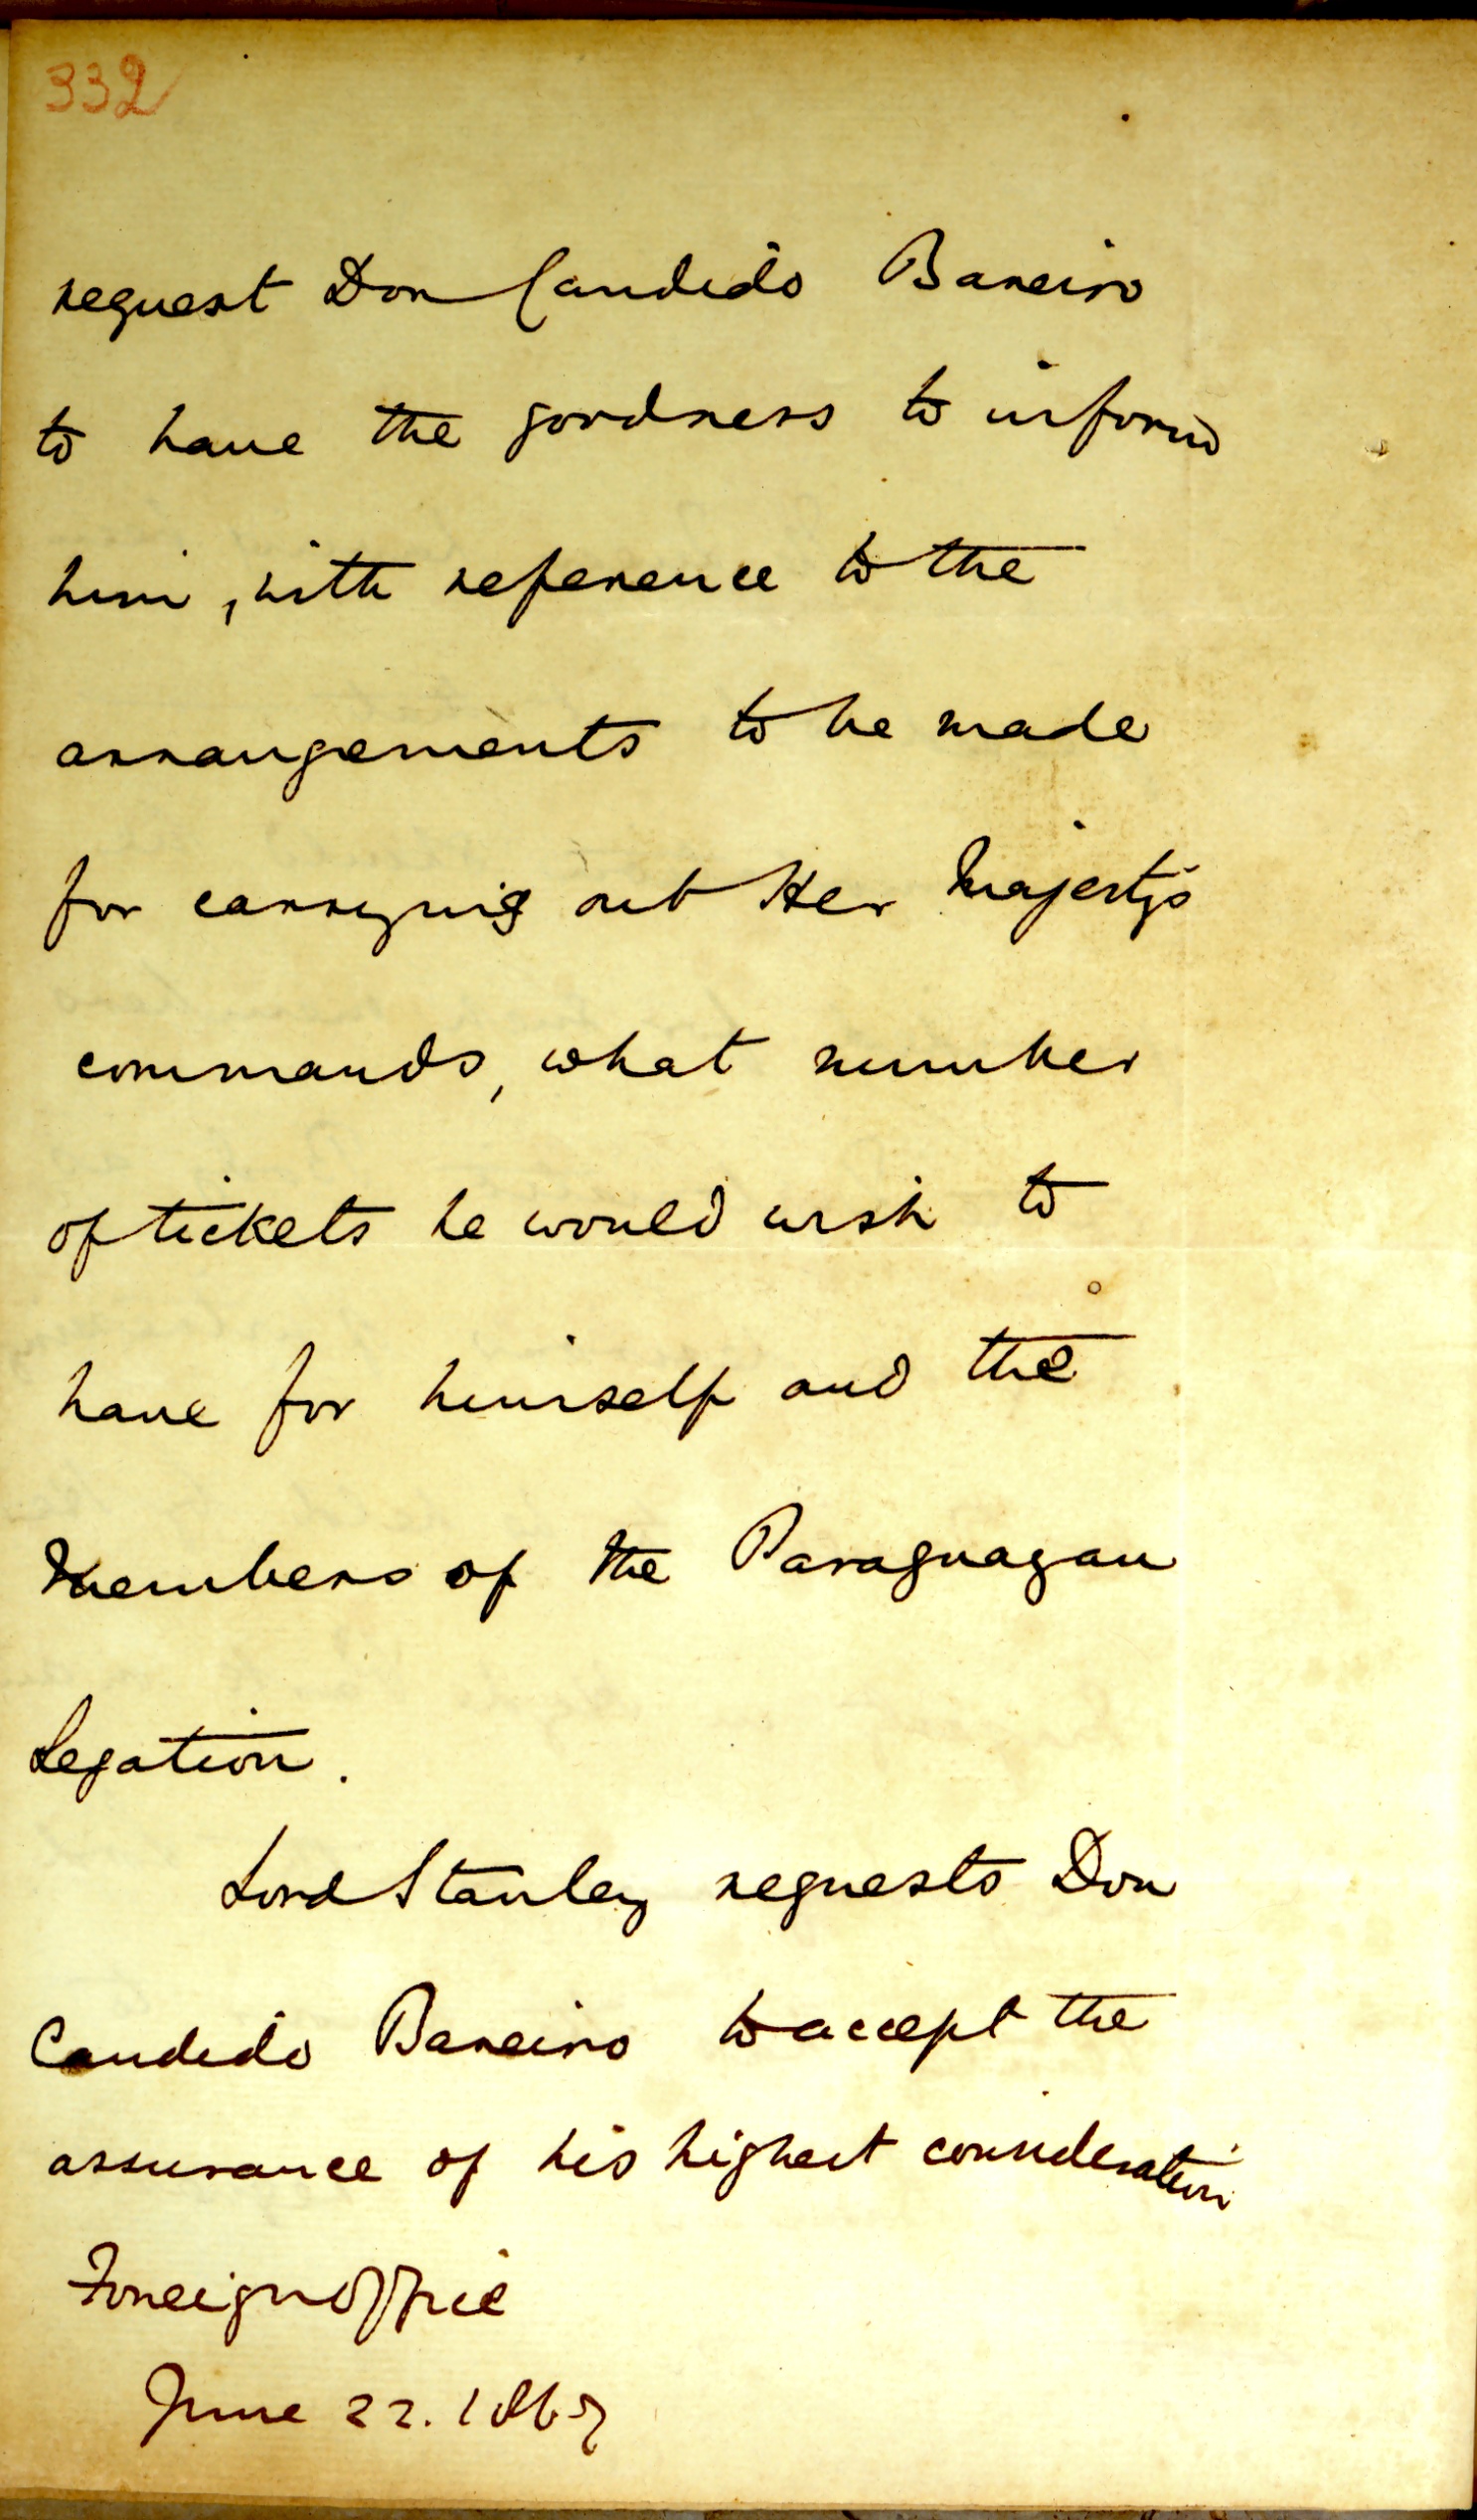 332
request Don Candido Bareiro
to have the goodness to inform
him, with reference to the
arrangements to be made
for carrying out Her Majesty's
commands, what number
of tickets he would wish to
have for himself and the
Members of the Paraguayan
Legation.
Lord Stanley requests Don
Candido Bareiro to accept the
assurance of his highest consideration
Foreign Office
June 22. 1867